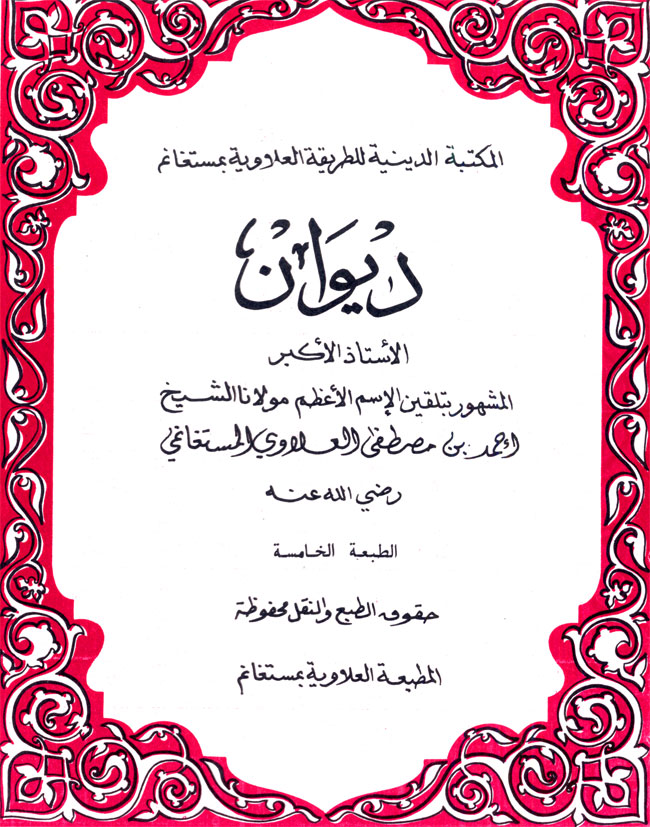 المكتبة الدينية للطريقة العلاوية بمستغانم
ديوان
الأستاذ الأكبر
المشهور بتلقين الإسم الأعظم مولانا الشيخ
أحمد بن مصطفى العلاوي المستغانمي
رضي الله عنه
الطبعة الخامسة
حقوق الطبع والنقل محفوظة
المطبعة العلاوية بمستغانم